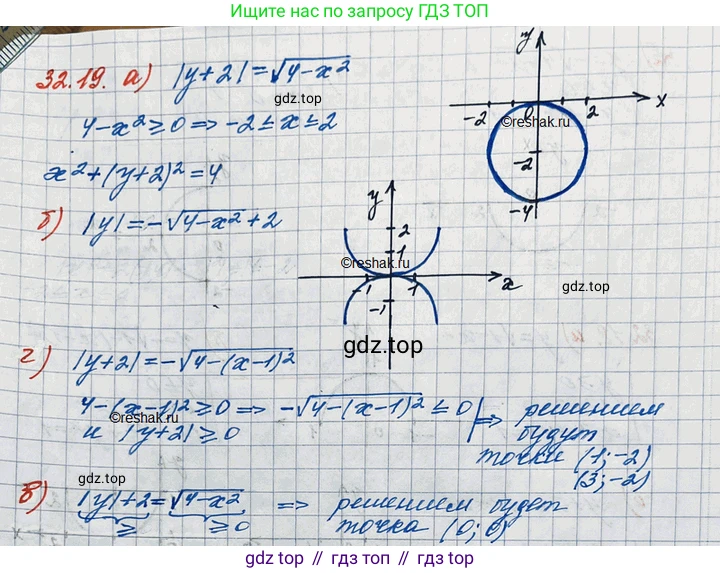 Ищите нас по запросу ГДЗ ТОП
32.19. а) |y+2|=√4-x²
gdz.top
4-x²≥0 ⇒ -2≤x≤2
x²+(y+2)²=4
y
-2 0 2 x
©reshak.ru
-2
-4
б) |y|=-√4-x²+2
y
2
1
©reshak.ru
-1 1 x
-1
gdz.top
gdz.top
г) |y+2|=-√4-(x-1)²
4-(x-1)²≥0 ⇒ -√4-(x-1)² ≤0 ⇒ решением
©reshak.ru
и |y+2|≥0
будут
точки (1;-2)
(3;-2)
gdz.top
в) |y|+2=√4-x² ⇒ решением будет
≥ ≥0 точка (0;0)
©reshak.ru
gdz top // гдз топ // gdz.top